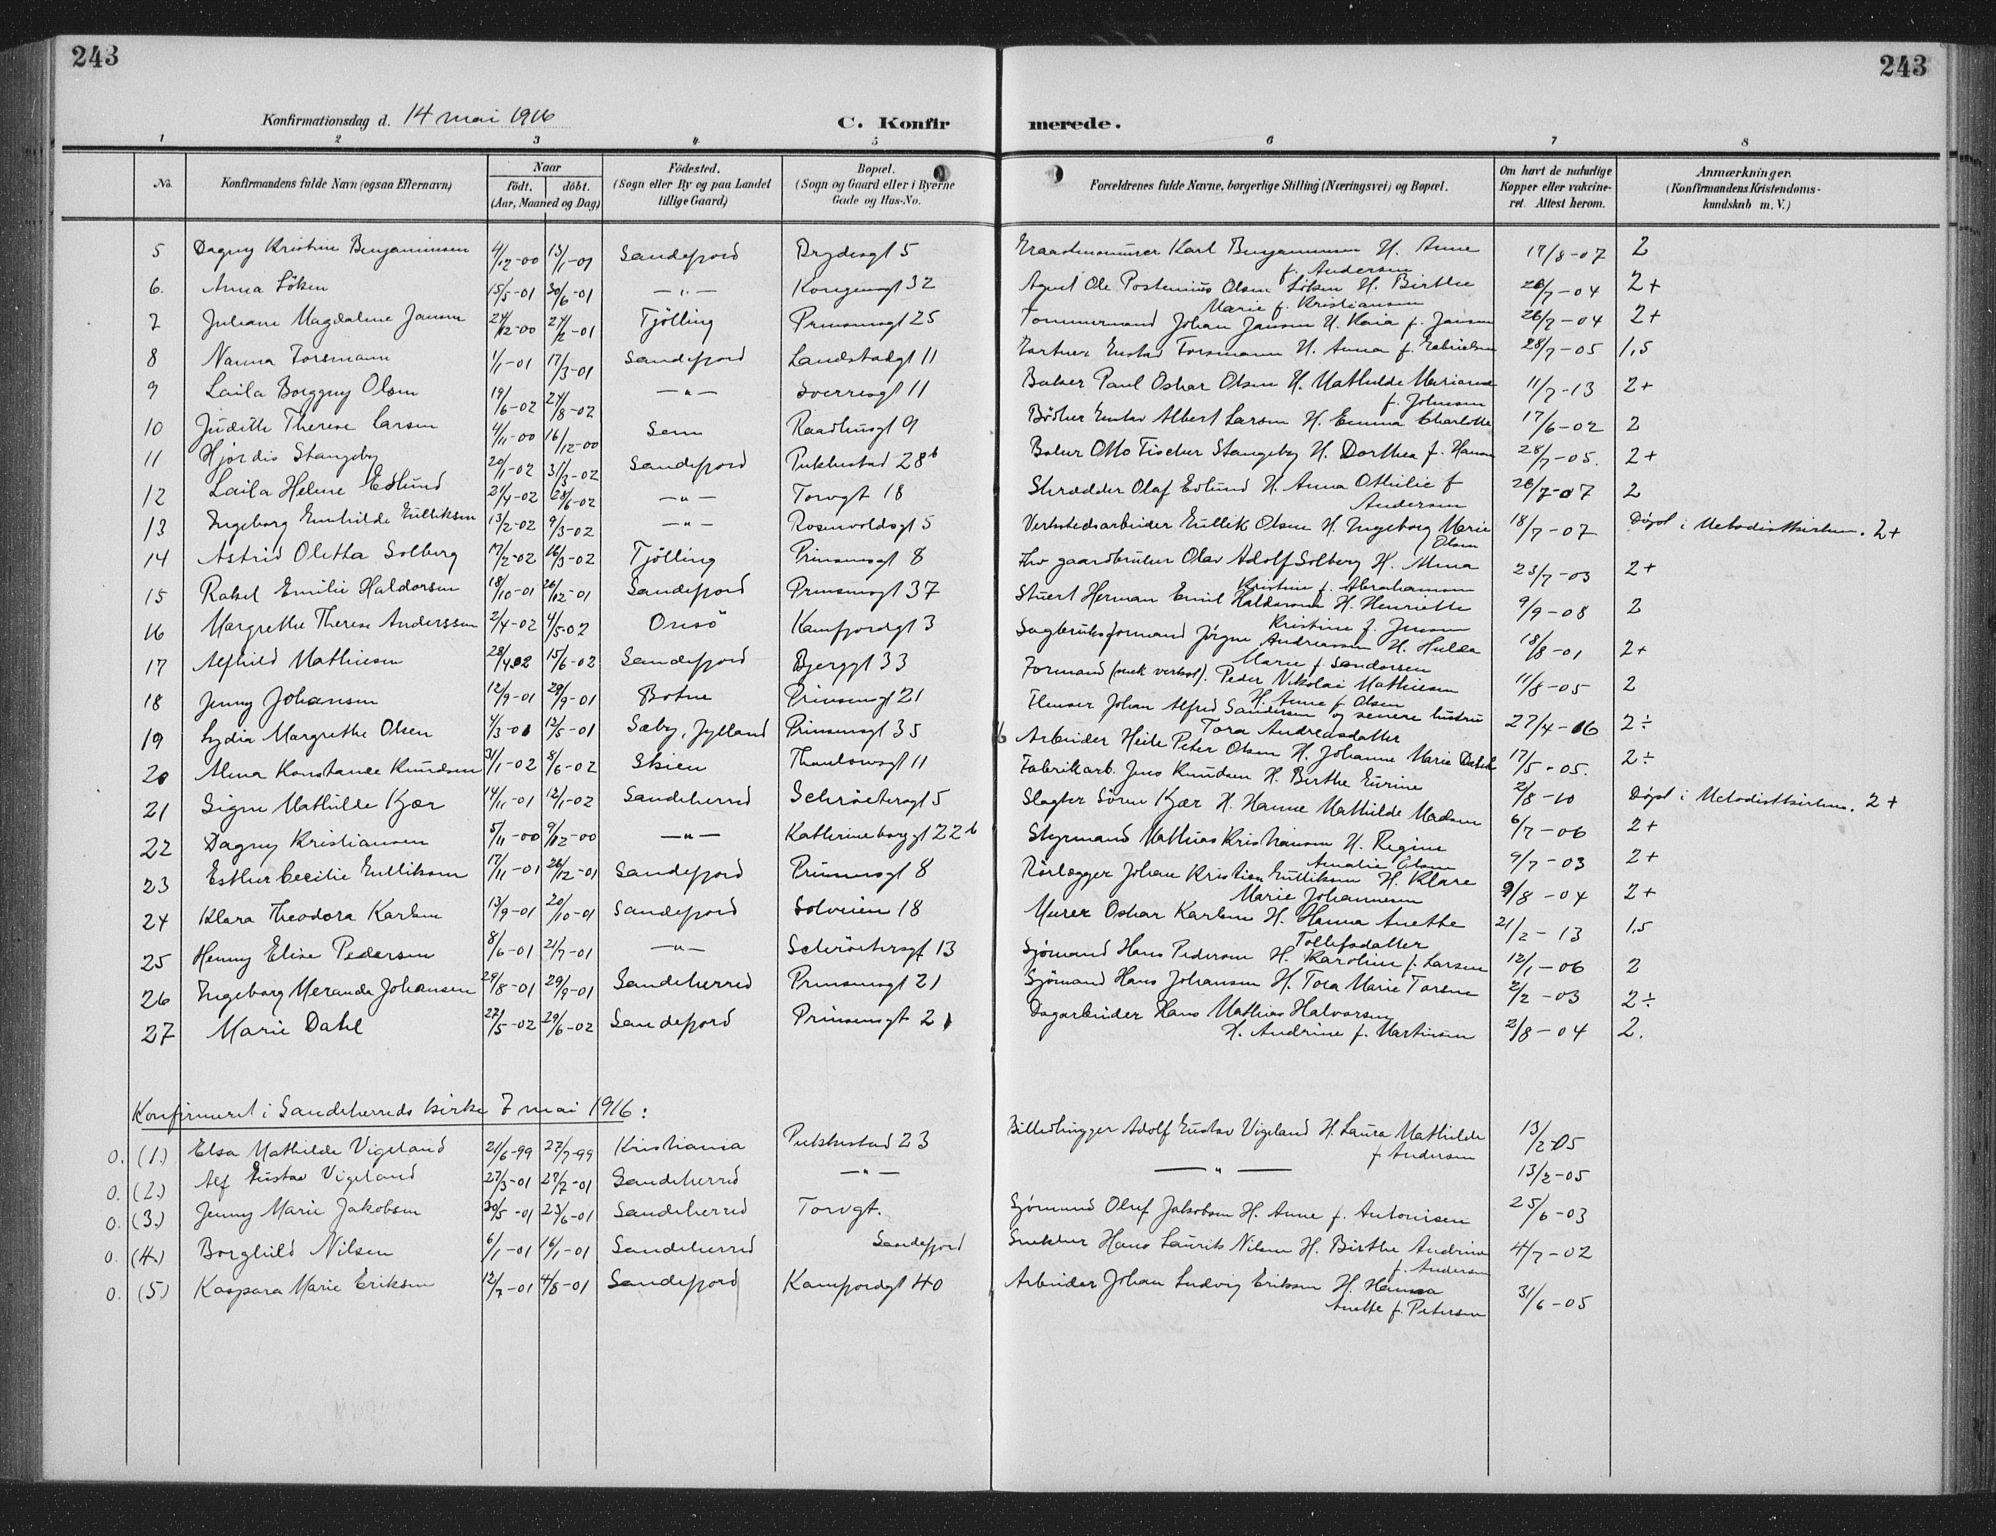 243 243
Konfirmationsdag d. 14 mai 1916 C. Konfir merede.
1 2 3 4 5 6 7 8
No. Konfirmandens fulde Navn (ogsaa Efternavn) Naar födt. döbt. (Aar, Maaned og Dag) Födested. (Sogn eller By og paa Landet tillige Gaard) Bopæl. (Sogn og Gaard eller i Byerne Gade og Hus-No. Forældrenes fulde Navne, borgerlige Stilling (Næringsvei) og Bopæl. Om havt de naturlige Kopper eller vakcineret. Attest herom. Anmærkninger. (Konfirmandens Kristendomskundskab m. V.)
5 Dagny Kristine Benjaminsen 4/12-00 13/1-01 Sandefjord Brydesgt 5 Karl Benjaminsen H. Anne f. Andersen 17/8-07 2
6. Anna Löken 15/5-01 30/6-01 —"— Kongensgt 32 Agent Ole Postenius Olsen Löken H. Birthe Marie f. Kristiansen 26/7-04 2+
7 Juliane Magdalene Jansen 24/12-00 24/2-01 Tjölling Prinsensgt 25 Tömmermand Johan Jansen H. Karia f. Jansen 26/7-04 2+
8 Nanna Forsmann 1/1-01 17/3-01 Sandefjord Landstadgt 11 Gartner Gustav Forsmann H. Anna f. Gabrielsen 28/7-05 1,5
9 Laila Borggny Olsen 19/6-02 24/8-02 —"— Sverresgt 11 Baker Paul Oskar Olsen H. Mathilde Mariane f. Johnsen 11/7-13 2+
10 Judith Therese Larsen 4/11-00 16/12-00 Sem Raadhusgt 9 Bödker Gustav Albert Larsen H. Emma Charlotte 17/6-02 2
11 Hjördis Stangeby 20/1-02 31/3-02 Sandefjord Pukkestad 28b Baker Otto Fischer Stangeby H. Dorthea f. Hansen 28/7-05. 2+
12 Laila Helene Edlund 21/4-02 28/6-02 —"— Torvgt 18 Skrædder Olaf Edlund H. Anna Othilie f Andersen 26/7-07 2
13 Ingeborg Gunhilde Gulliksen 13/2-02 9/3-02 —"— Rosenvoldsgt 5 Verkstedsarbeider Gullik Olsen H. Ingeborg Marie Olsen 18/7-07 Döpt i Metodistkirken. 2+
14 Astrid Oletha Solberg 17/2-02 16/3-02 Tjölling Prinsensgt 8 Fhv gaardbruker Olav Adolf Solberg H. Alma Kristine f. Abrahamsen 23/7-03 2+
15 Rakel Emilie Haldorsen 18/10-01 26/12-01 Sandefjord Prinsensgt 37 Stuert Herman Emil Haldorsen H. Henriette Kristine f. Jensen 9/9-08 2
16 Margrethe Therese Anderssen 2/4-02 4/5-02 Onsö Kamfjordgt 3 Sagbruksformand Jörgen Andreassen H. Hulda Marie f. Sandersen 18/8-01 2+
17 Alfhild Mathiesen 28/4.02 15/6-02 Sandefjord Bjerggt 33 Formand (mek verkst). Peder Nikolai Mathiesen H. Anne f. Olsen 11/8-05 2
18 Jenny Johansen 12/9-01 29/9-01 Botne Prinsensgt 21 Flenser Johan Alfred Sandersen og senere hustru Tora Andreasdatter 27/4-06 2÷
19 Lydia Margrethe Olsen 4/3-01 12/5-01 Sæby, Jylland Prinsensgt 35 Arbeider Heile Peter Olsen H. Johanne Marie Dahl 17/5-05. 2÷
20 Alma Konstance Knudsen 31/1-02 8/6-02 Skien Thaulowsgt 11 Fabrikarb. Jens Knudsen H. Birthe Gurine 2/8-10
21 Signe Mathilde Kjær 14/11-01 12/1-02 Sandeherred Schröetersgt 5 Slagter Sören Kjær H. Hanne Mathilde Madsen Döpt i Metodistkirken. 2+
22 Dagny Kristiansen 5/11-00 9/12-00 —"— Katherineborggt 22b Styrmand Mathias Kristiansen H. Regine Amalie Olsen 6/7-06 2+
23 Esther Cecilie Gulliksen 17/11-01 26/12-01 Sandefjord Prinsensgt 8 Rörlægger Johan Kristian Gulliksen H. Klare Marie Johannesen 9/7-03 2+
24 Klara Theodora Karlsen 13/9-01 20/10-01 Sandefjord Solveien 18 Murer Oskar Karlsen H. Hanna Anethe Tollefsdatter 9/8-04 2+
25 Henny Elise Pedersen 8/6-01 21/7-01 —"— Schröetersgt 13 Sjömand Hans Pedersen H. Karoline f. Larsen 21/2-13 1,5
26 Ingeborg Merande Johansen 29/8-01 29/9-01 Sandeherred Prinsensgt 21 Sjömand Hans Johansen H. Tora Marie Torsen 12/1-06 2
2/2-03 2÷
27 Marie Dahl 27/5-02 29/6-02 Sandefjord Prinsensgt 21 Dagarbeider Hans Mathias Halvorsen H. Andrine f. Martinsen 2/8-04 2.
Konfirmeret i Sandeherreds kirke 7 mai 1916:
0. (1.) Elsa Mathilde Vigeland 21/6-99 27/7-99 Kristiania Pukkestad 23 Billedhugger Adolf Gustav Vigeland H. Laura Mathilde f Andersen 13/2-05
0. (2.) Alf Gustav Vigeland 27/3-01 27/7-01 Sandeherred —"— —"— 13/2-05
0. (3.) Jenny Marie Jakobsen 30/5-01 23/6-01 Sandeherred Torvgt. Sjömand Oluf Jakobsen H. Anne f. Antonisen 25/6-03
0. (4.) Borghild Nilsen 6/1-01 16/1-01 Sandeherred Sandefjord Snekker Hans Laurits Nilsen H. Birthe Andrine f. Andersen 4/7-02
0. (5.) Kaspara Marie Eriksen 12/7-01 4/8-01 Sandefjord Kamfjordgt 40 Arbeider Johan Ludvig Eriksen H. Hanna Anette f. Petersen 31/6-05